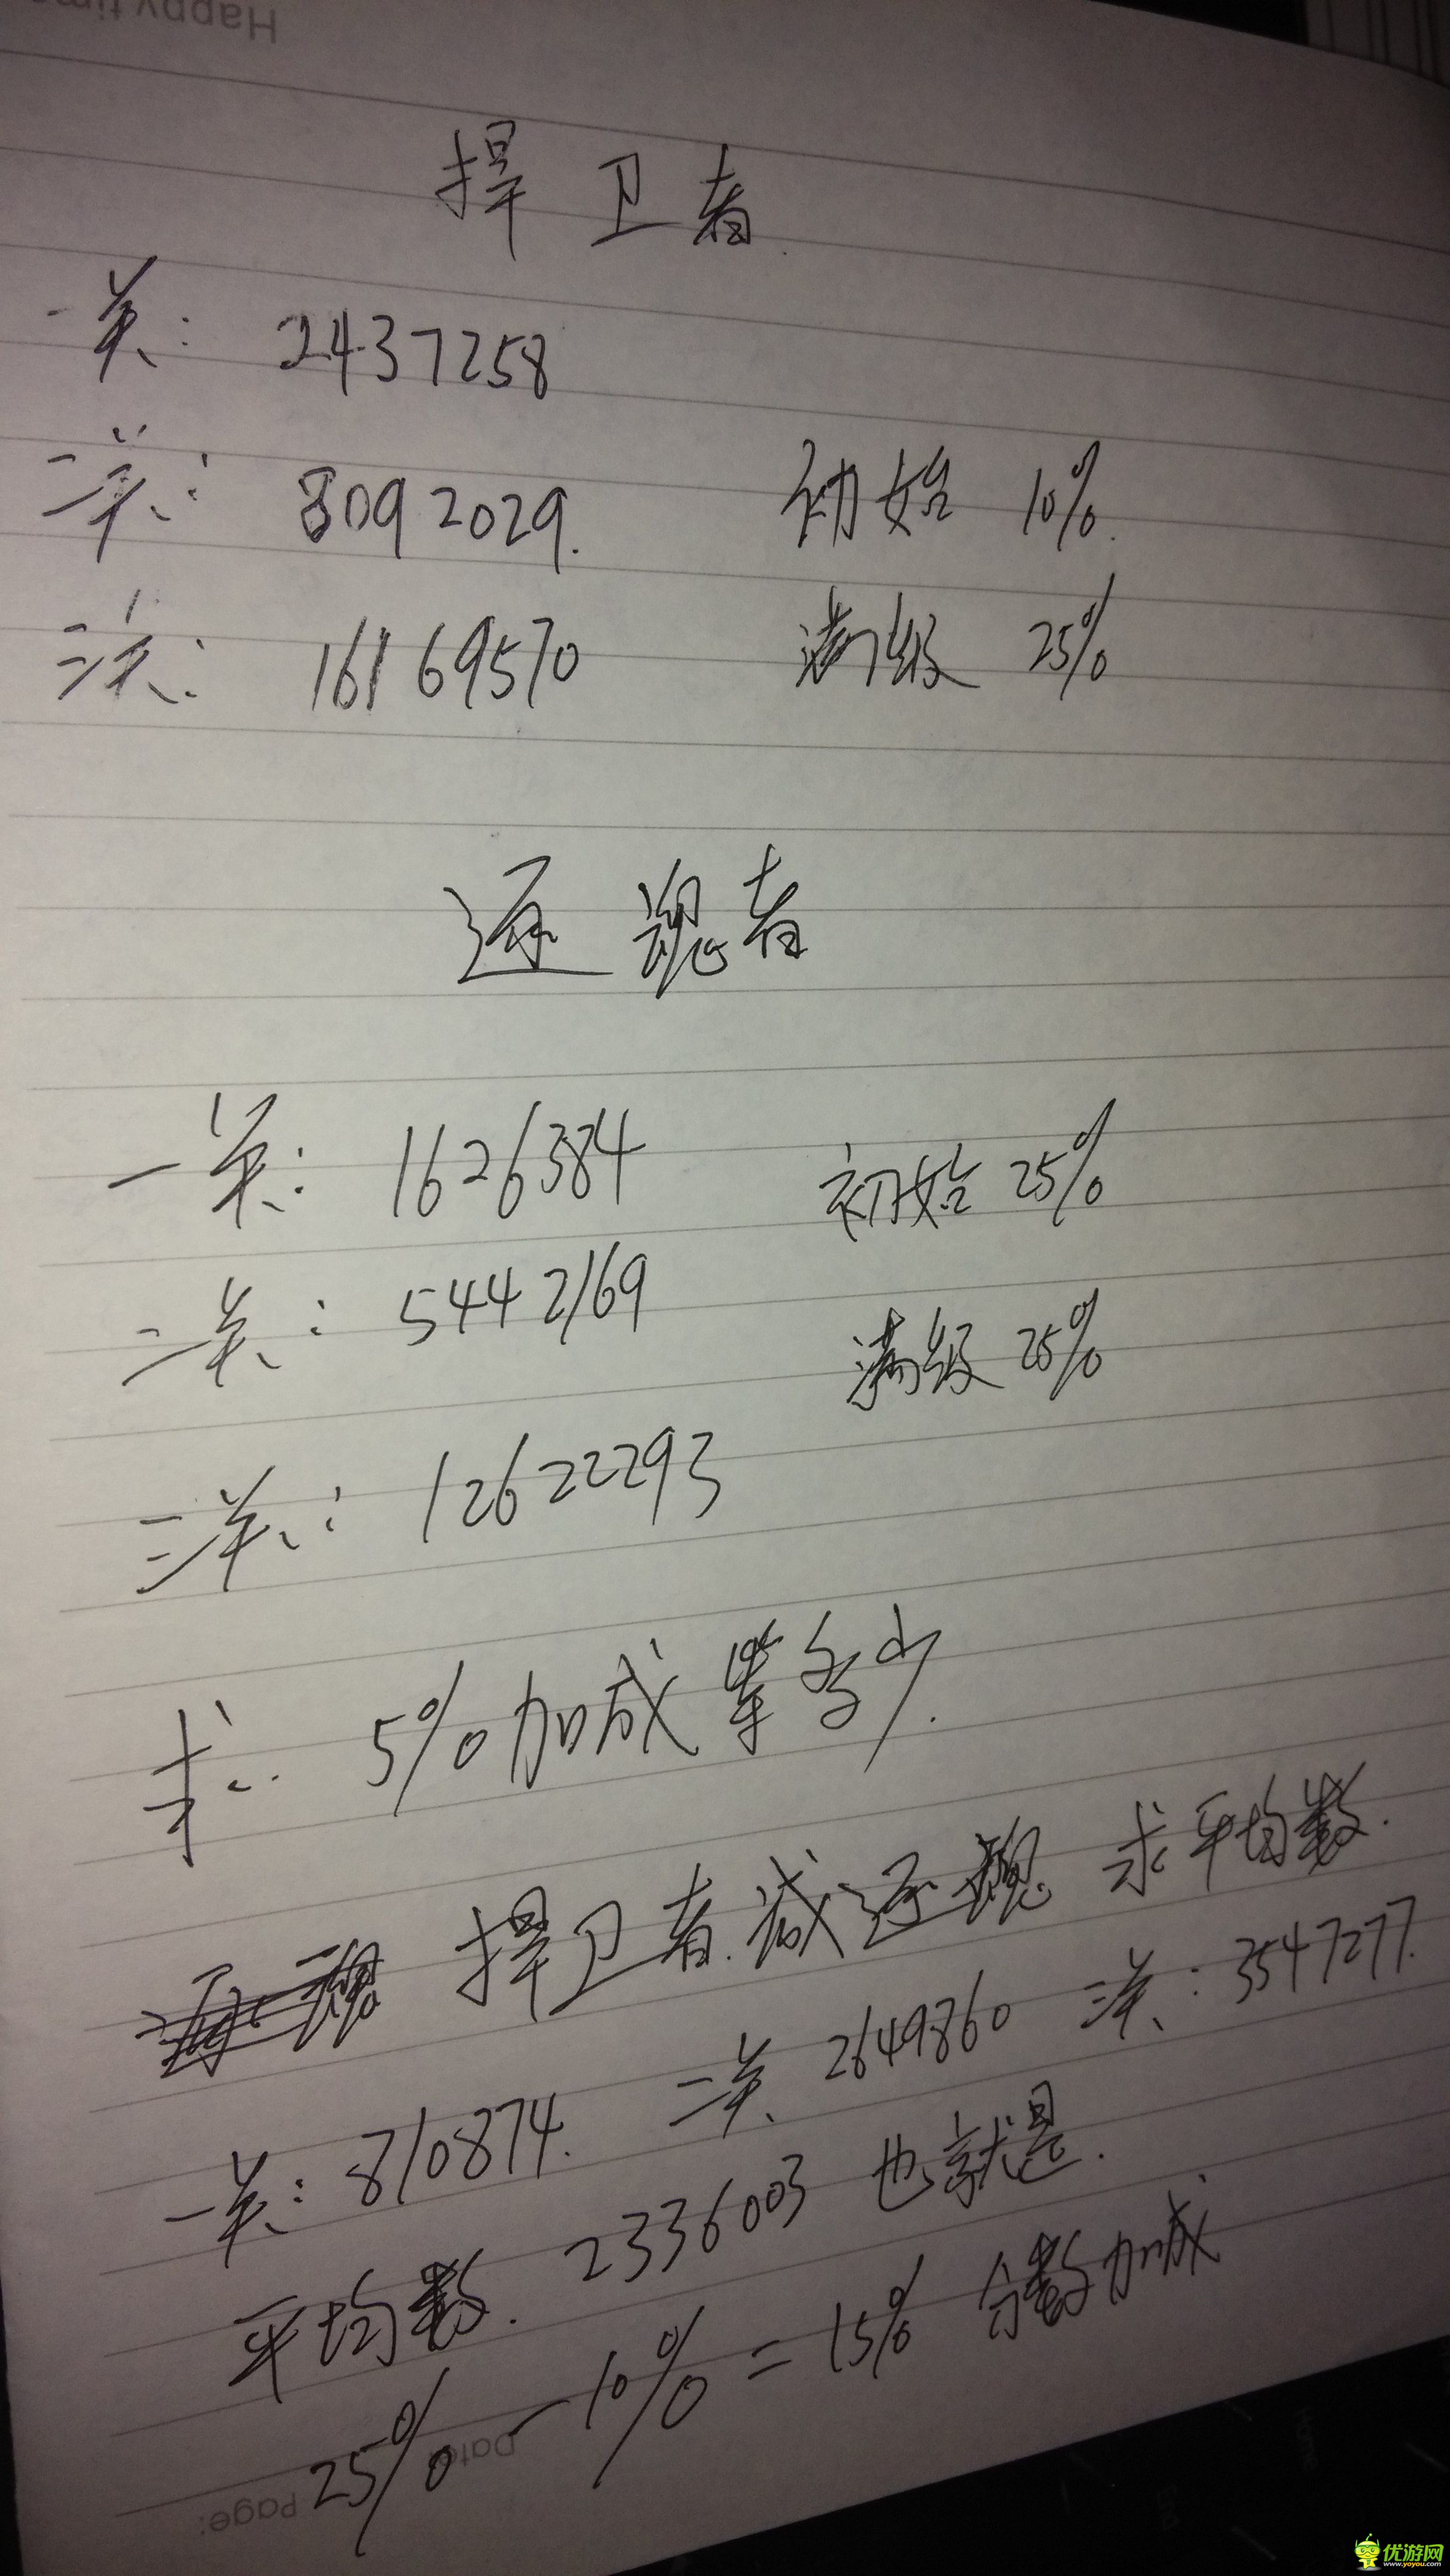 Happy tim
捍卫者
一关: 2437258
二关: 8092029. 初始 10%.
三关: 16169570 满级 25%
逐魂者
一关: 1626384 初始 25%
二关: 5442169 满级 25%
三关: 12622293
求: 5%加成等多少.
捍卫者减逐魂 求平均数.
一关: 810874. 二关 2649860 三关: 3547277.
平均数. 2336003 也就是.
25% - 10% = 15% 分数加成
Date
Page:
优游网
www.yoyou.com